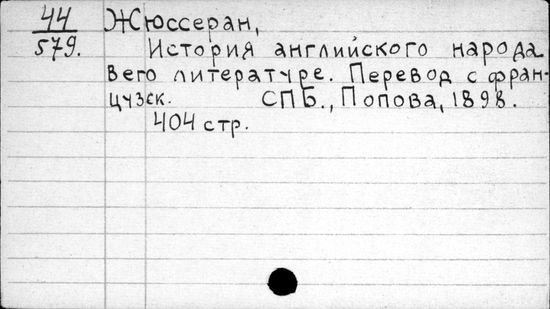 44 Жюссеран,
579. История английского народа
в его литературе. Перевод с фран-
цузск. СПБ., Попова, 1898.
404 стр.